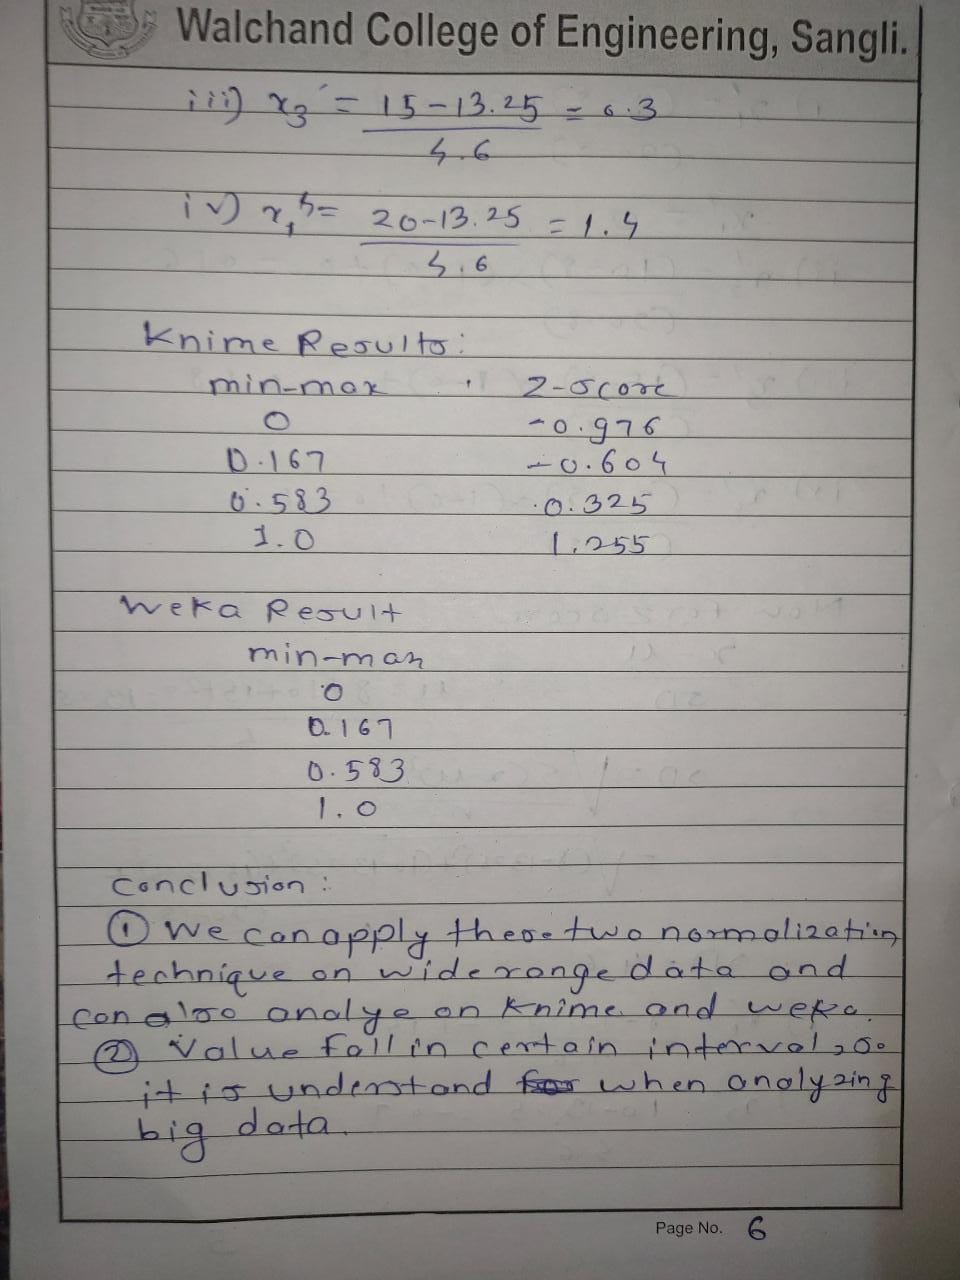 Walchand College of Engineering, Sangli.
iii) x3' = 15-13.25 = 0.3
4.6
iv) x1 4= 20-13.25 = 1.4
4.6
Knime Results:
min-max Z-score
0 -0.976
0.167 -0.604
0.583 0.325
1.0 1.255
Weka Result
min-max
0
0.167
0.583
1.0
Conclusion:
① We can apply these two normalization
technique on wide range data and
can also analye on Knime and weka.
② Value fall in certain interval, so
it is understand when analyzing
big data.
Page No. 6